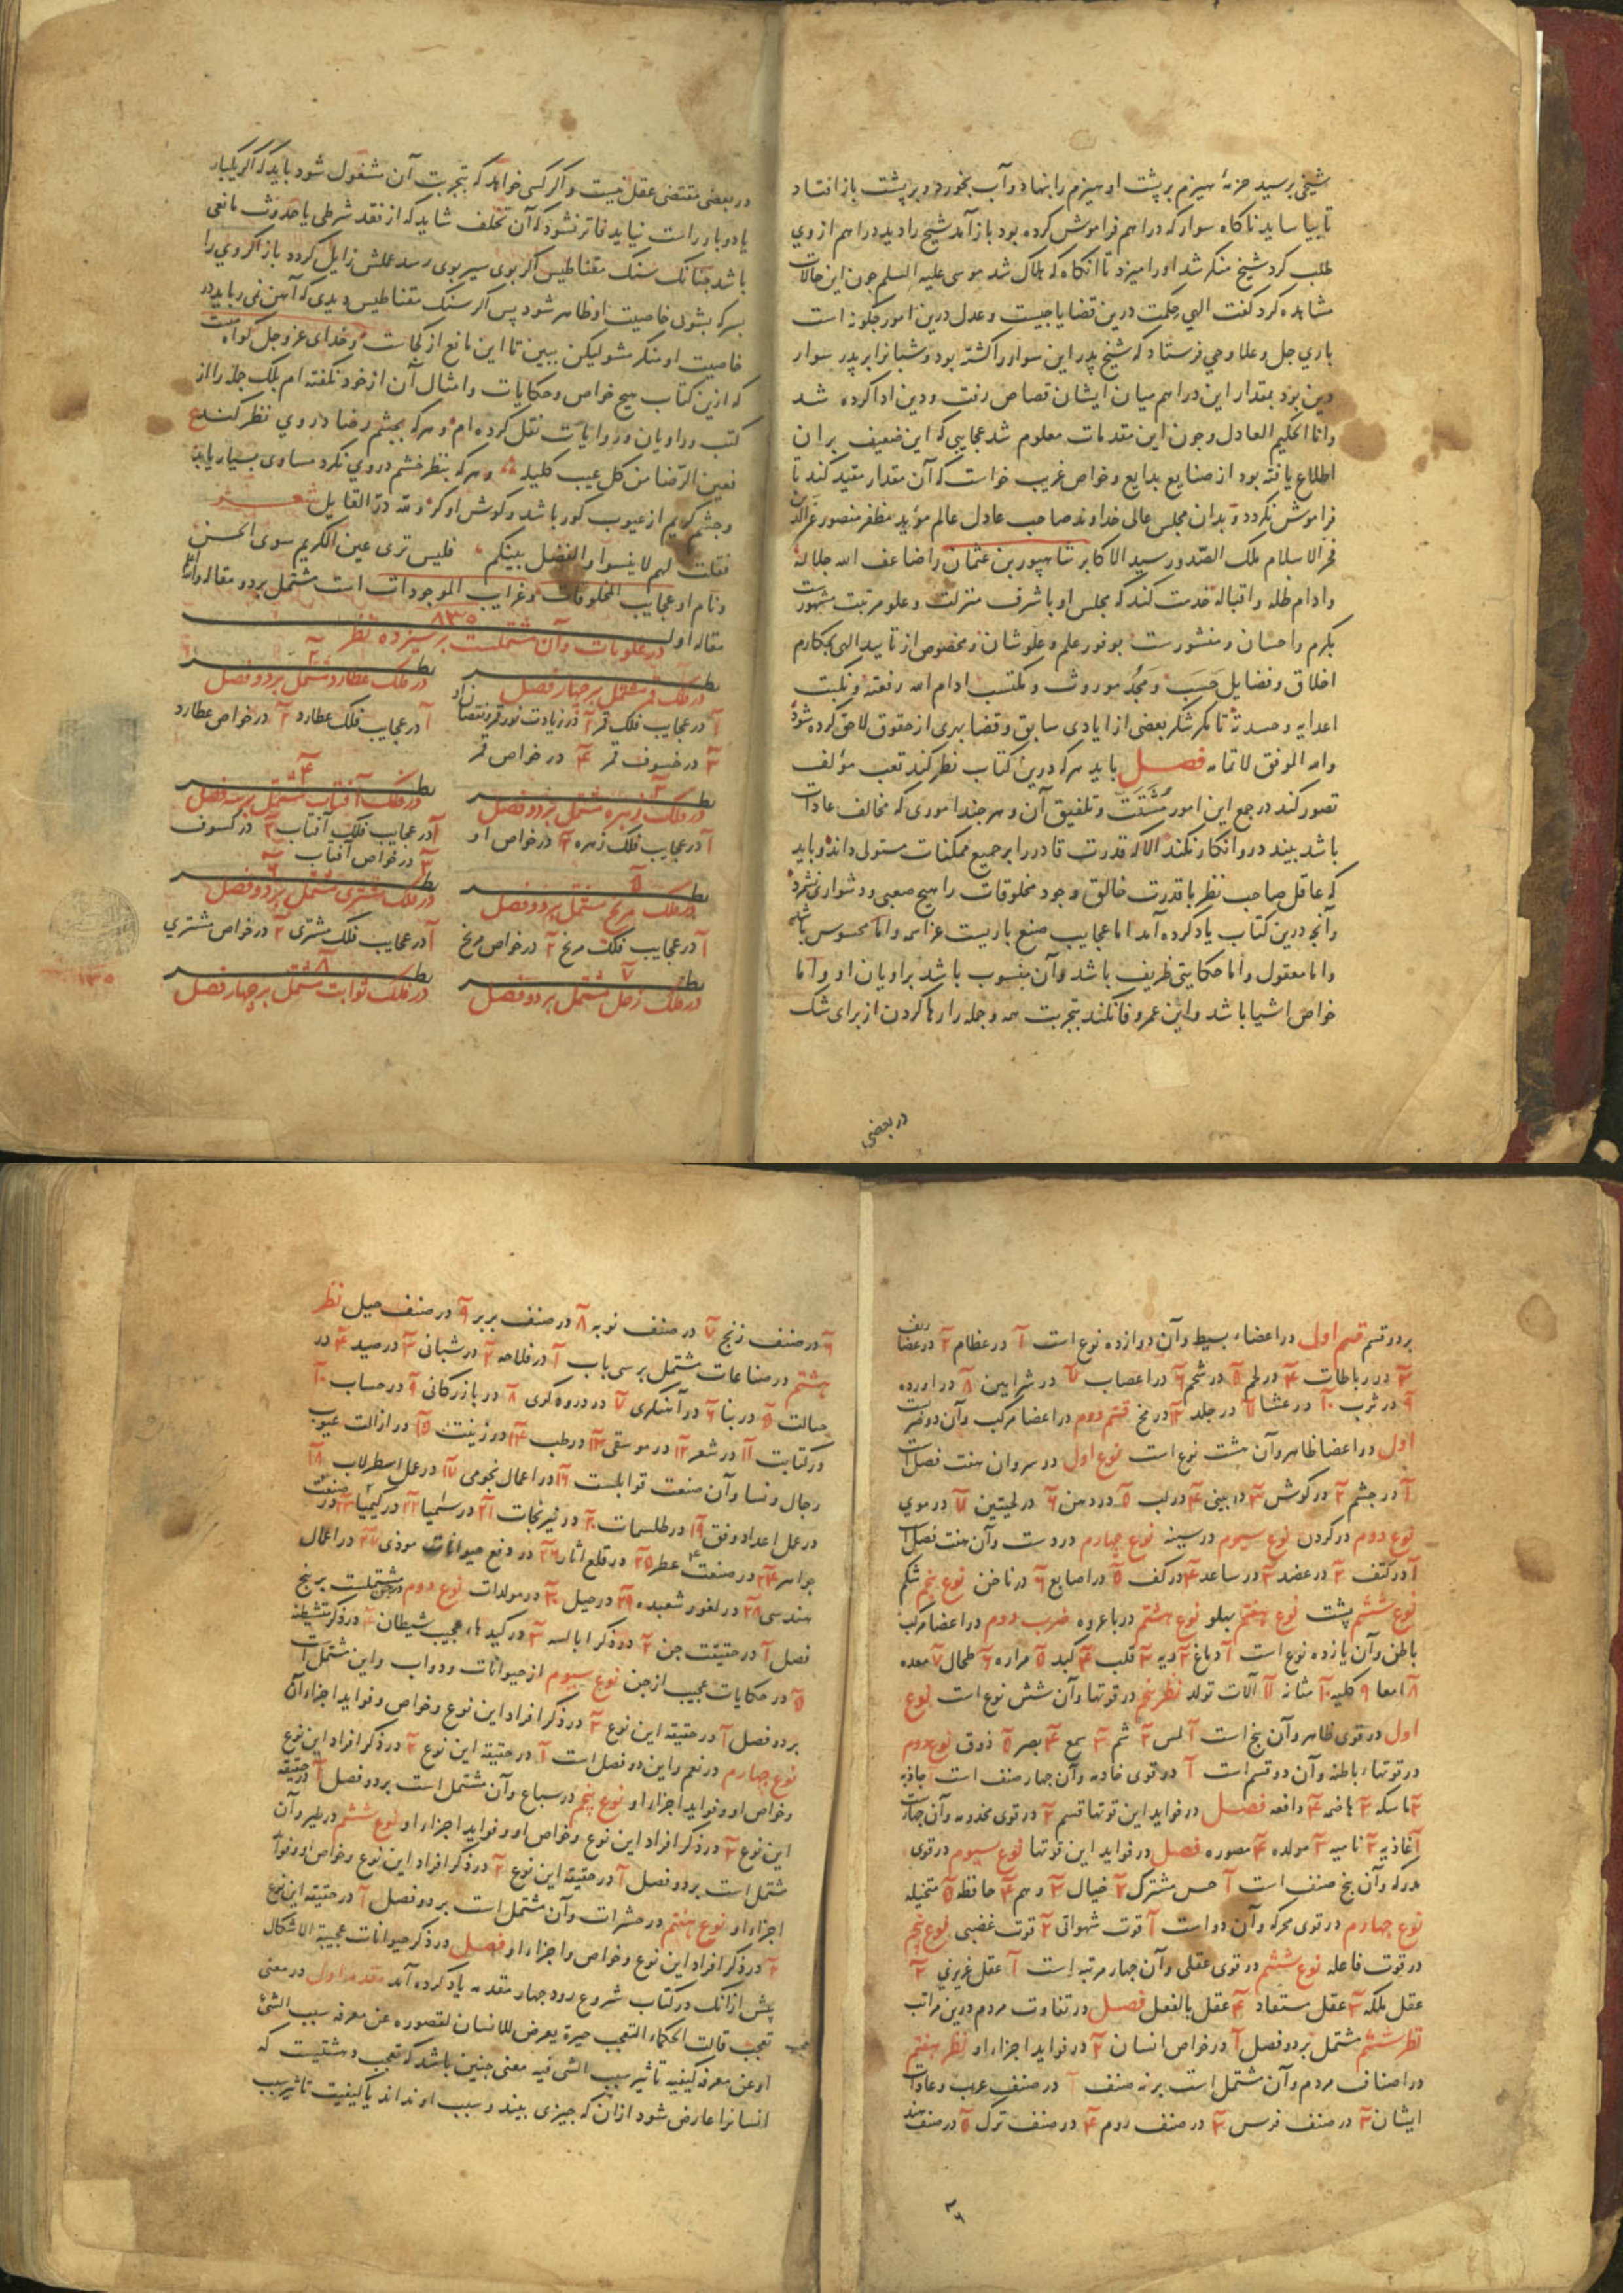 شیخی برسید حزمهٔ هیزم بر پشت او هیزم را بنهاد و آب بخورد و بر پشت باز افتاد
تا بیاساید ناکاه سوار که دراهم فراموش کرده بود باز آمد شیخ را دید دراهم از وی
طلب کرد شیخ منکر شد او را میزد تا آنکاه که هلاک شد موسی علیه السلم جون این حالات
مشاهده کرد کفت الهی حکمت درین قضایا جیست و عدل درین امور جکونه است
باری جل و علا وحی فرستاد که شیخ پدر این سوار را کشته بود و شبانرا بر پدر سوار
دین بود بمقدار این دراهم میان ایشان قصاص رفت و دین ادا کرده شد
وانا الحکیم العادل و جون این مقدمات معلوم شد عجایبی که این ضعیف بر آن
اطلاع یافته بود از صنایع بدایع و خواص غریب خواست که آن مقدار مقید کند تا
فراموش نکردد و بدان مجلس عالی خداوند صاحب عادل عالم مؤید مظفر منصور عز الدین
فخر الاسلام ملک الصدور سید الاکابر شاهپور بن عثمان را ضاعف الله جلاله
و ادام ظله و اقباله خدمت کند که مجلس او با شرف منزلت و علو مرتبت مشهورست
بکرم و احسان و منشورست بوفور علم و علو شان و مخصوص از تایید الهی بمکارم
اخلاق و فضایل حسب و مجد موروث و مکتسب ادام الله رفعته و نکبت
اعدایه و حسدته تا مکر شکر بعضی از ایادی سابق و قضا بهری از حقوق لاحق کرده شود
والله الموفق لاتمامه فصل باید هرکه درین کتاب نظر کند تعب مؤلف
تصور کند در جمع این امور مشتت و تلفیق آن و هر جند اموری که مخالف عادات
باشد بیند درو انکار نکند الا که قدرت قادر را بر جمیع ممکنات مستولی داند و باید
که عاقل صاحب نظر با قدرت خالق وجود مخلوقات را هیچ صعبی و دشواری نشمرد
و آنجه درین کتاب یاد کرده آمد اما عجایب صنع باریست عز اسمه و اما محسوس باشد
و اما معقول و اما حکایتی ظریف باشد و آن منسوب باشد براویان او و اما
خواص اشیا باشد و این عمر وفا نکند بتجربت همه و جمله را رها کردن از برای شک
در بعضی
در بعضی مقتضی عقل نیست و اکر کسی خواهد که بتجربت آن مشغول شود باید که اکر یکبار
یا دو بار راست نیاید فاتر نشود که آن تخلف شاید که از نقد شرطی یا حدوث مانعی
باشد جنانک سنک مقناطیس اکر بوی سیر بوی رسد عملش زایل کردد باز اکر وی را
بسرکه بشوی خاصیت او ظاهر شود پس اکر سنک مقناطیس دیدی که آهن نمی رباید در
خاصیت او منکر مشو لیکن ببین تا این مانع از کجاست و خدای عز و جل کواه است
که ازین کتاب هیج خواص و حکایات و امثال آن از خود نکفته ام بلک جمله را از
کتب و راویان و روایات نقل کرده ام و هرکه بجشم رضا در وی نظر کند ع
فعین الرضا من کل عیب کلیلة و هرکه بنظر خشم در وی نکرد مساوی بسیار یابد
و جشم کریم از عیوب کور باشد و کوش او کر و لله در القایل شعر
فقلت لهم لا تنسوا الفضل بینکم فلیس تری عین الکریم سوی الحسن
و نام او عجایب المخلوقات و غرایب الموجودات است مشتمل بر دو مقاله و الله اعلم
مقاله اول در علویات و آن مشتملست بر سیزده نظر ٨٣٥
نظر ١ در فلک قمر مشتمل بر جهار فصل
آ در عجایب فلک قمر ٢ در زیادت نور قمر و نقصان او
٣ در خسوف قمر ٤ در خواص قمر
نظر ٢ در فلک عطارد مشتمل بر دو فصل
آ در عجایب فلک عطارد ٢ در خواص عطارد
نظر ٣ در فلک زهره مشتمل بر دو فصل
آ در عجایب فلک زهره ٢ در خواص او
نظر ٤ در فلک آفتاب مشتمل بر سه فصل
آ در عجایب فلک آفتاب ٢ در کسوف
٣ در خواص آفتاب
نظر ٥ در فلک مریخ مشتمل بر دو فصل
آ در عجایب فلک مریخ ٢ در خواص مریخ
نظر ٦ در فلک مشتری مشتمل بر دو فصل
آ در عجایب فلک مشتری ٢ در خواص مشتری
نظر ٧ در فلک زحل مشتمل بر دو فصل
نظر ٨ در فلک ثوابت مشتمل بر جهار فصل
بر دو قسم قسم اول در اعضاء بسیط و آن دوازده نوع است آ در عظام ٢ در غضاریف
٣ در رباطات ٤ در لحم ٥ در شحم ٦ در اعصاب ٧ در شرایین ٨ در اورده
٩ در ثرب ١٠ در غشا ١١ در جلد ١٢ در مخ قسم دوم در اعضا مرکب و آن دو ضربست
اول در اعضا ظاهر و آن هشت نوع است نوع اول در سر و آن هفت فصل است
آ در جشم ٢ در کوش ٣ در بینی ٤ در لب ٥ در دهن ٦ در لحیتین ٧ در موی
نوع دوم در کردن نوع سیوم در سینه نوع جهارم در دست و آن هفت فصل است
آ در کتف ٢ در عضد ٣ در ساعد ٤ در کف ٥ در اصابع ٦ در ناخن نوع پنجم شکم
نوع ششم پشت نوع هفتم پهلو نوع هشتم در پا و غیره ضرب دوم در اعضا مرکب
باطن و آن یازده نوع است آ دماغ ٢ ریه ٣ قلب ٤ کبد ٥ مراره ٦ طحال ٧ معده
٨ امعا ٩ کلیه ١٠ مثانه ١١ آلات تولد نظر پنجم در قوتها و آن شش نوع است نوع
اول در قوی ظاهر و آن پنج است آ لمس ٢ شم ٣ سمع ٤ بصر ٥ ذوق نوع دوم
در قوتهاء باطنه و آن دو قسم است آ در قوی خادمه و آن جهار صنف است آ جاذبه
٢ ماسکه ٣ هاضمه ٤ دافعه فصل در فواید این قوتها قسم ٢ در قوی مخدومه و آن جهارست
آ غاذیه ٢ نامیه ٣ مولده ٤ مصوره فصل در فواید این قوتها نوع سیوم در قوی
مدرکه و آن پنج صنف است آ حس مشترک ٢ خیال ٣ وهم ٤ حافظه ٥ متخیله
نوع جهارم در قوی محرکه و آن دو است آ قوت شهوانی ٢ قوت غضبی نوع پنجم
در قوت فاعله نوع ششم در قوی عقلی و آن جهار مرتبه است آ عقل غریزی ٢
عقل بملکه ٣ عقل مستفاد ٤ عقل بالفعل فصل در تفاوت مردم درین مراتب
نظر ششم مشتمل بر دو فصل آ در خواص انسان ٢ در فواید اجزاء او نظر هفتم
در اصناف مردم و آن مشتمل است بر نه صنف آ در صنف عرب و عادات
ایشان ٢ در صنف فرس ٣ در صنف روم ٤ در صنف ترک ٥ در صنف هند
٦ در صنف زنج ٧ در صنف نوبه ٨ در صنف بربر ٩ در صنف جیل نظر
هشتم در صناعات مشتمل بر سی باب آ در فلاحه ٢ در شبانی ٣ در صید ٤ در
حیاکت ٥ در بنا ٦ در آهنکری ٧ در دروه کری ٨ در بازرکانی ٩ در حساب ١٠
در کتابت ١١ در شعر ١٢ در موسقی ١٣ در طب ١٤ در زینت ١٥ در ازالت عیوب
رجال و نسا و آن صنعت قوابلست ١٦ در اعمال نجومی ١٧ در عمل اسطرلاب ١٨
در عمل اعداد وفق ١٩ در طلسمات ٢٠ در نیرنجات ٢١ در سیمیا ٢٢ در کیمیا ٢٣ در صنعت
جواهر ٢٤ در صنعت عطر ٢٥ در قلع آثار ٢٦ در دفع حیوانات موذی ٢٧ در اعمال
هندسی ٢٨ در لغو و شعبده ٢٩ در حیل ٣٠ در مولدات نوع دوم در جن مشتملست بر پنج
فصل آ در حقیقت جن ٢ در ذکر ابالسه ٣ در کیدهاء عجیب شیطان ٤ در ذکر متشیطنه
٥ در حکایات عجیب از جن نوع سیوم از حیوانات و دواب و این مشتمل است
بر دو فصل آ در حقیقة این نوع ٢ در ذکر افراد این نوع و خواص و فواید اجزاء آن
نوع جهارم در نعم و این دو فصل است آ در حقیقة این نوع ٢ در ذکر افراد این نوع
و خواص او و فواید اجزاء او نوع پنجم در سباع و آن مشتمل است بر دو فصل آ در حقیقة
این نوع ٢ در ذکر افراد این نوع و خواص او و فواید اجزاء او نوع ششم در طیر و آن
مشتمل است بر دو فصل آ در حقیقة این نوع ٢ در ذکر افراد این نوع و خواص او و فواید
اجزاء او نوع هفتم در حشرات و آن مشتمل است بر دو فصل آ در حقیقة این نوع
٢ در ذکر افراد این نوع و خواص و اجزاء او فصل در ذکر حیوانات عجیبة الاشکال
پیش از آنک در کتاب شروع رود جهار مقدمه یاد کرده آمد مقدمه اول در معنی
تعجب قالت الحکماء التعجب حیرة یعرض للانسان لقصوره عن معرفة سبب الشئ
او عن معرفة کیفیة تاثیر سبب الشی فیه معنی جنین باشد که تعجب دهشتیست که
انسانرا عارض شود از آن که جیزی بیند و سبب او نداند یا کیفیت تاثیر سبب